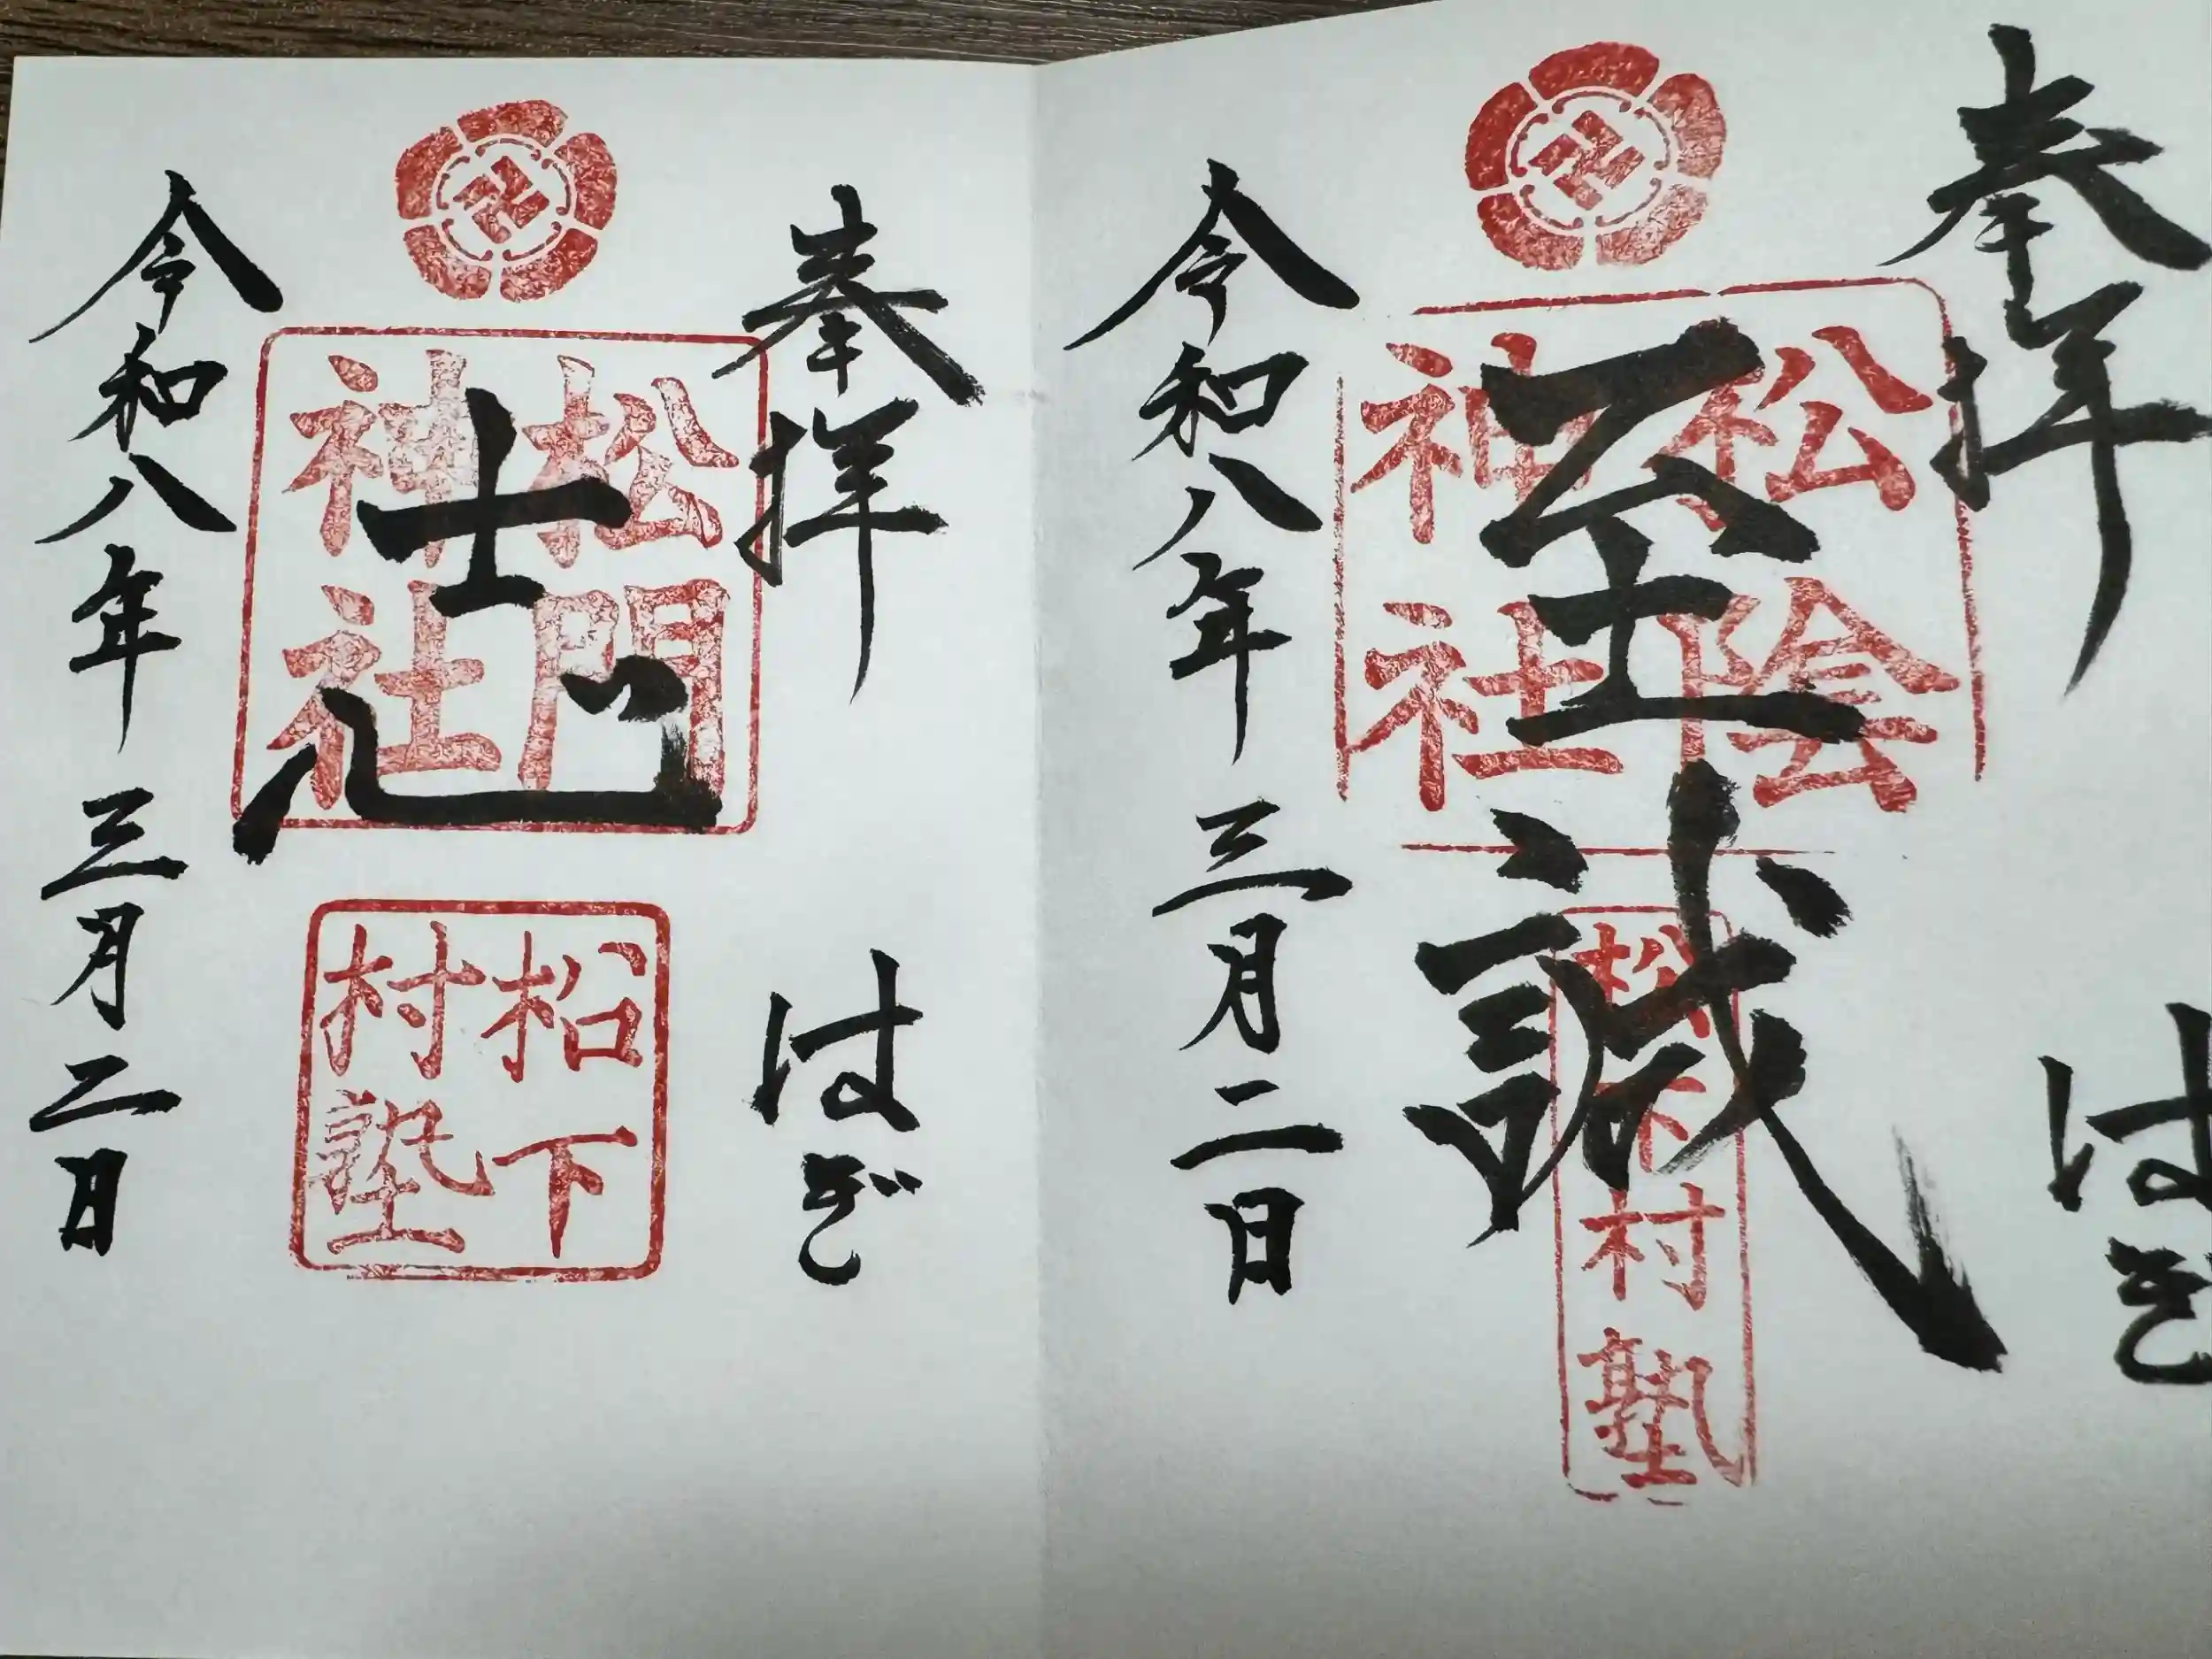 奉拝
はぎ
松陰
神社
至誠
松下村塾
令和八年三月二日
奉拝
はぎ
松門
神社
志
松下
村塾
令和八年三月二日